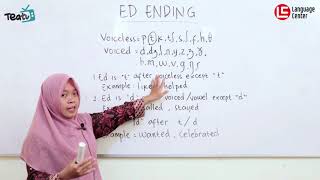 Teatu
LC Language
Center
ED ENDING
Voiceless = p, t, k, tʃ, s, ʃ, f, h, θ
voiced = d, dʒ, l, n, y, z, ʒ, ð,
b, m, w, v, g, ŋ, r
1. Ed is "t" after voiceless except "t"
Example : liked, helped
2. Ed is "d" voiced/vowel except "d"
called, stayed
"id" after t/d
Example = wanted, celebrated